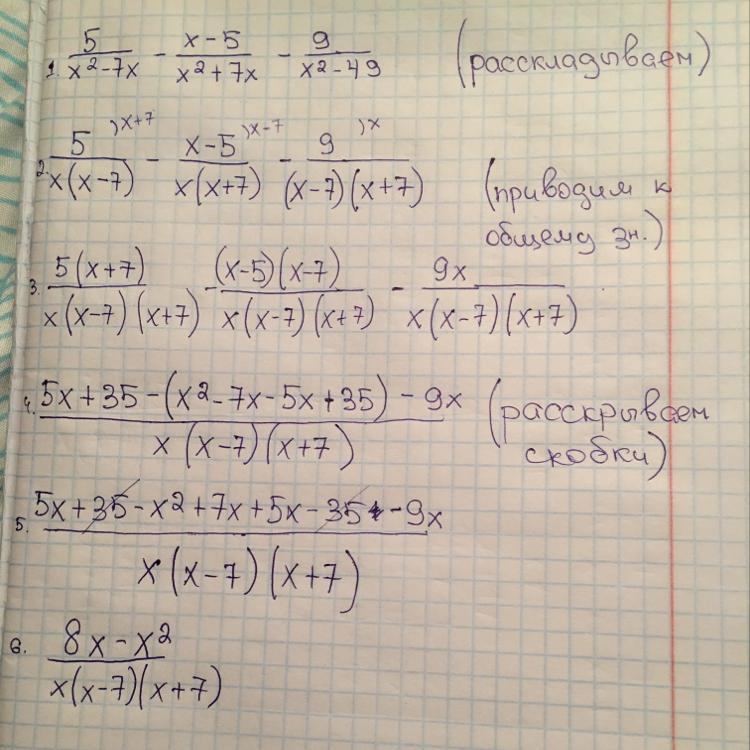 1. 5/(x²-7x) - (x-5)/(x²+7x) - 9/(x²-49) (расскладываем)
2. 5/(x(x-7)) ⁾ˣ⁺⁷ - (x-5)/(x(x+7)) ⁾ˣ⁻⁷ - 9/((x-7)(x+7)) ⁾ˣ (приводим к
общему зн.)
3. 5(x+7)/(x(x-7)(x+7)) - (x-5)(x-7)/(x(x-7)(x+7)) - 9x/(x(x-7)(x+7))
4. (5x+35-(x²-7x-5x+35)-9x)/(x(x-7)(x+7)) (расскрываем
скобки)
5. (5x+35-x²+7x+5x-35-9x)/(x(x-7)(x+7))
6. (8x-x²)/(x(x-7)(x+7))